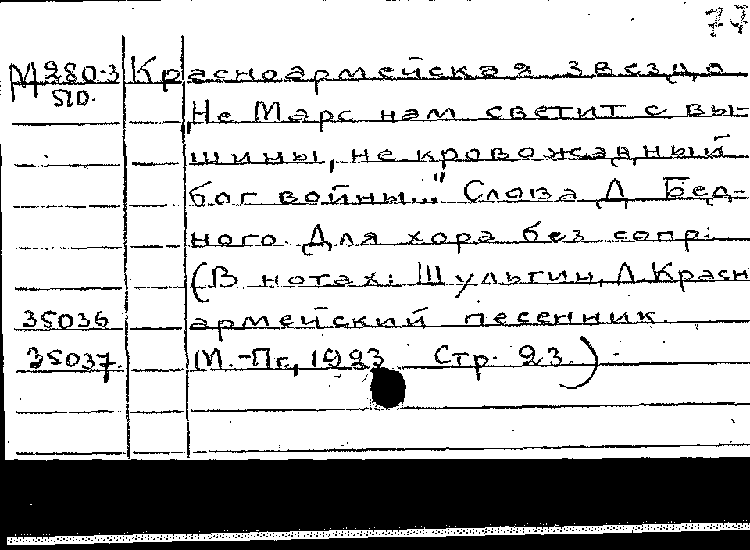 77
М280-3 Красноармейская звезда
510. „Не Марс нам светит с вы-
шины, не кровожадный
бог войны..." Слова Д. Бед-
ного. Для хора без сопр.
(В нотах: Шульгин, Л. Красн
35036 армейский песенник.
35037. М.-Пг., 1923. Стр. 23.)